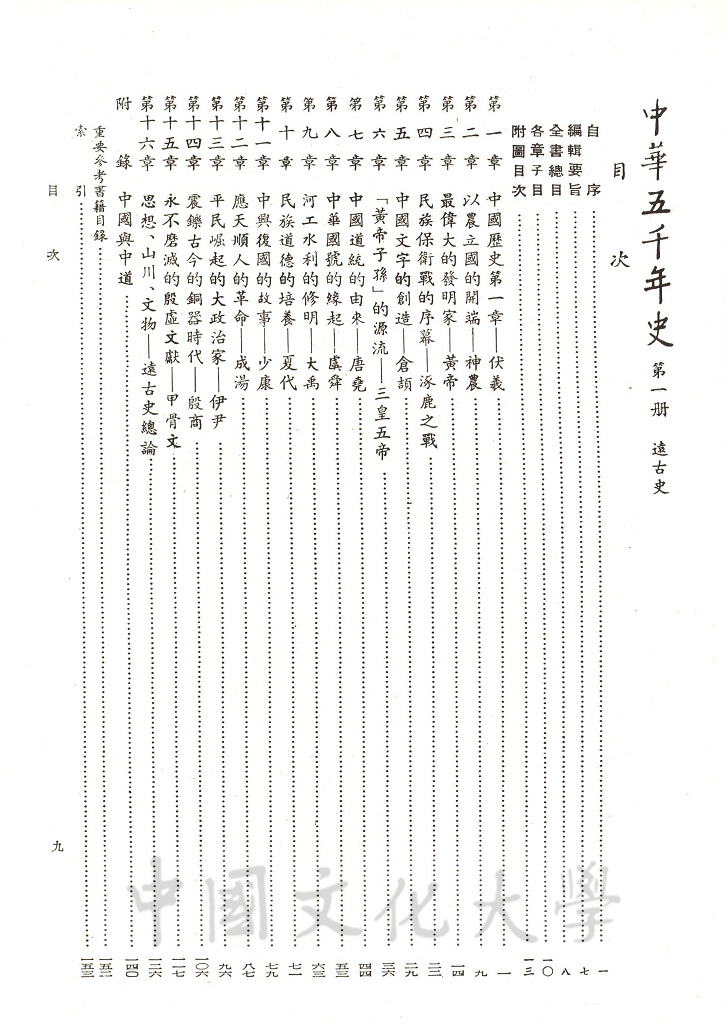 中華五千年史 第一册 遠古史
目次
自序……一
編輯要旨……七
全書總目……八
各章子目……一〇
附圖目次……一三
第一章 中國歷史第一章——伏羲……一
第二章 以農立國的開端——神農……九
第三章 最偉大的發明家——黃帝……一四
第四章 民族保衛戰的序幕——涿鹿之戰……
第五章 中國文字的創造——倉頡……二九
第六章 「黃帝子孫」的源流——三皇五帝……三六
第七章 中國道統的由來——唐堯……四四
第八章 中華國號的緣起——虞舜……五三
第九章 河工水利的修明——大禹……六三
第十章 民族道德的培養——夏代……七一
第十一章 中興復國的故事——少康……七九
第十二章 應天順人的革命——成湯……八七
第十三章 平民崛起的大政治家——伊尹……九六
第十四章 震鑠古今的銅器時代——殷商……一〇六
第十五章 永不磨滅的殷虛文獻——甲骨文……一一七
第十六章 思想、山川、文物——遠古史總論……一二六
附錄 中國與中道……一四〇
重要參考書籍目錄……一五二
索引……一五三
目次
九
中國文化大學